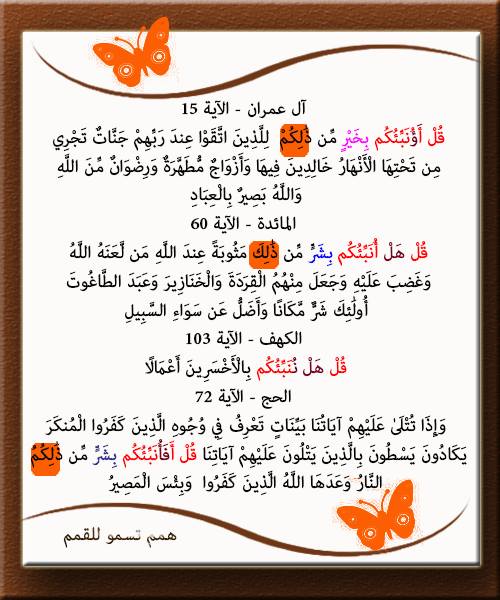 آل عمران - الآية 15
قُلْ أَؤُنَبِّئُكُم بِخَيْرٍ مِّن ذَٰلِكُمْ لِلَّذِينَ اتَّقَوْا عِندَ رَبِّهِمْ جَنَّاتٌ تَجْرِي
مِن تَحْتِهَا الْأَنْهَارُ خَالِدِينَ فِيهَا وَأَزْوَاجٌ مُّطَهَّرَةٌ وَرِضْوَانٌ مِّنَ اللَّهِ
وَاللَّهُ بَصِيرٌ بِالْعِبَادِ
المائدة - الآية 60
قُلْ هَلْ أُنَبِّئُكُم بِشَرٍّ مِّن ذَٰلِكَ مَثُوبَةً عِندَ اللَّهِ مَن لَّعَنَهُ اللَّهُ
وَغَضِبَ عَلَيْهِ وَجَعَلَ مِنْهُمُ الْقِرَدَةَ وَالْخَنَازِيرَ وَعَبَدَ الطَّاغُوتَ
أُولَٰئِكَ شَرٌّ مَّكَانًا وَأَضَلُّ عَن سَوَاءِ السَّبِيلِ
الكهف - الآية 103
قُلْ هَلْ نُنَبِّئُكُم بِالْأَخْسَرِينَ أَعْمَالًا
الحج - الآية 72
وَإِذَا تُتْلَىٰ عَلَيْهِمْ آيَاتُنَا بَيِّنَاتٍ تَعْرِفُ فِي وُجُوهِ الَّذِينَ كَفَرُوا الْمُنكَرَ
يَكَادُونَ يَسْطُونَ بِالَّذِينَ يَتْلُونَ عَلَيْهِمْ آيَاتِنَا قُلْ أَفَأُنَبِّئُكُم بِشَرٍّ مِّن ذَٰلِكُمُ
النَّارُ وَعَدَهَا اللَّهُ الَّذِينَ كَفَرُوا وَبِئْسَ الْمَصِيرُ
همم تسمو للقمم